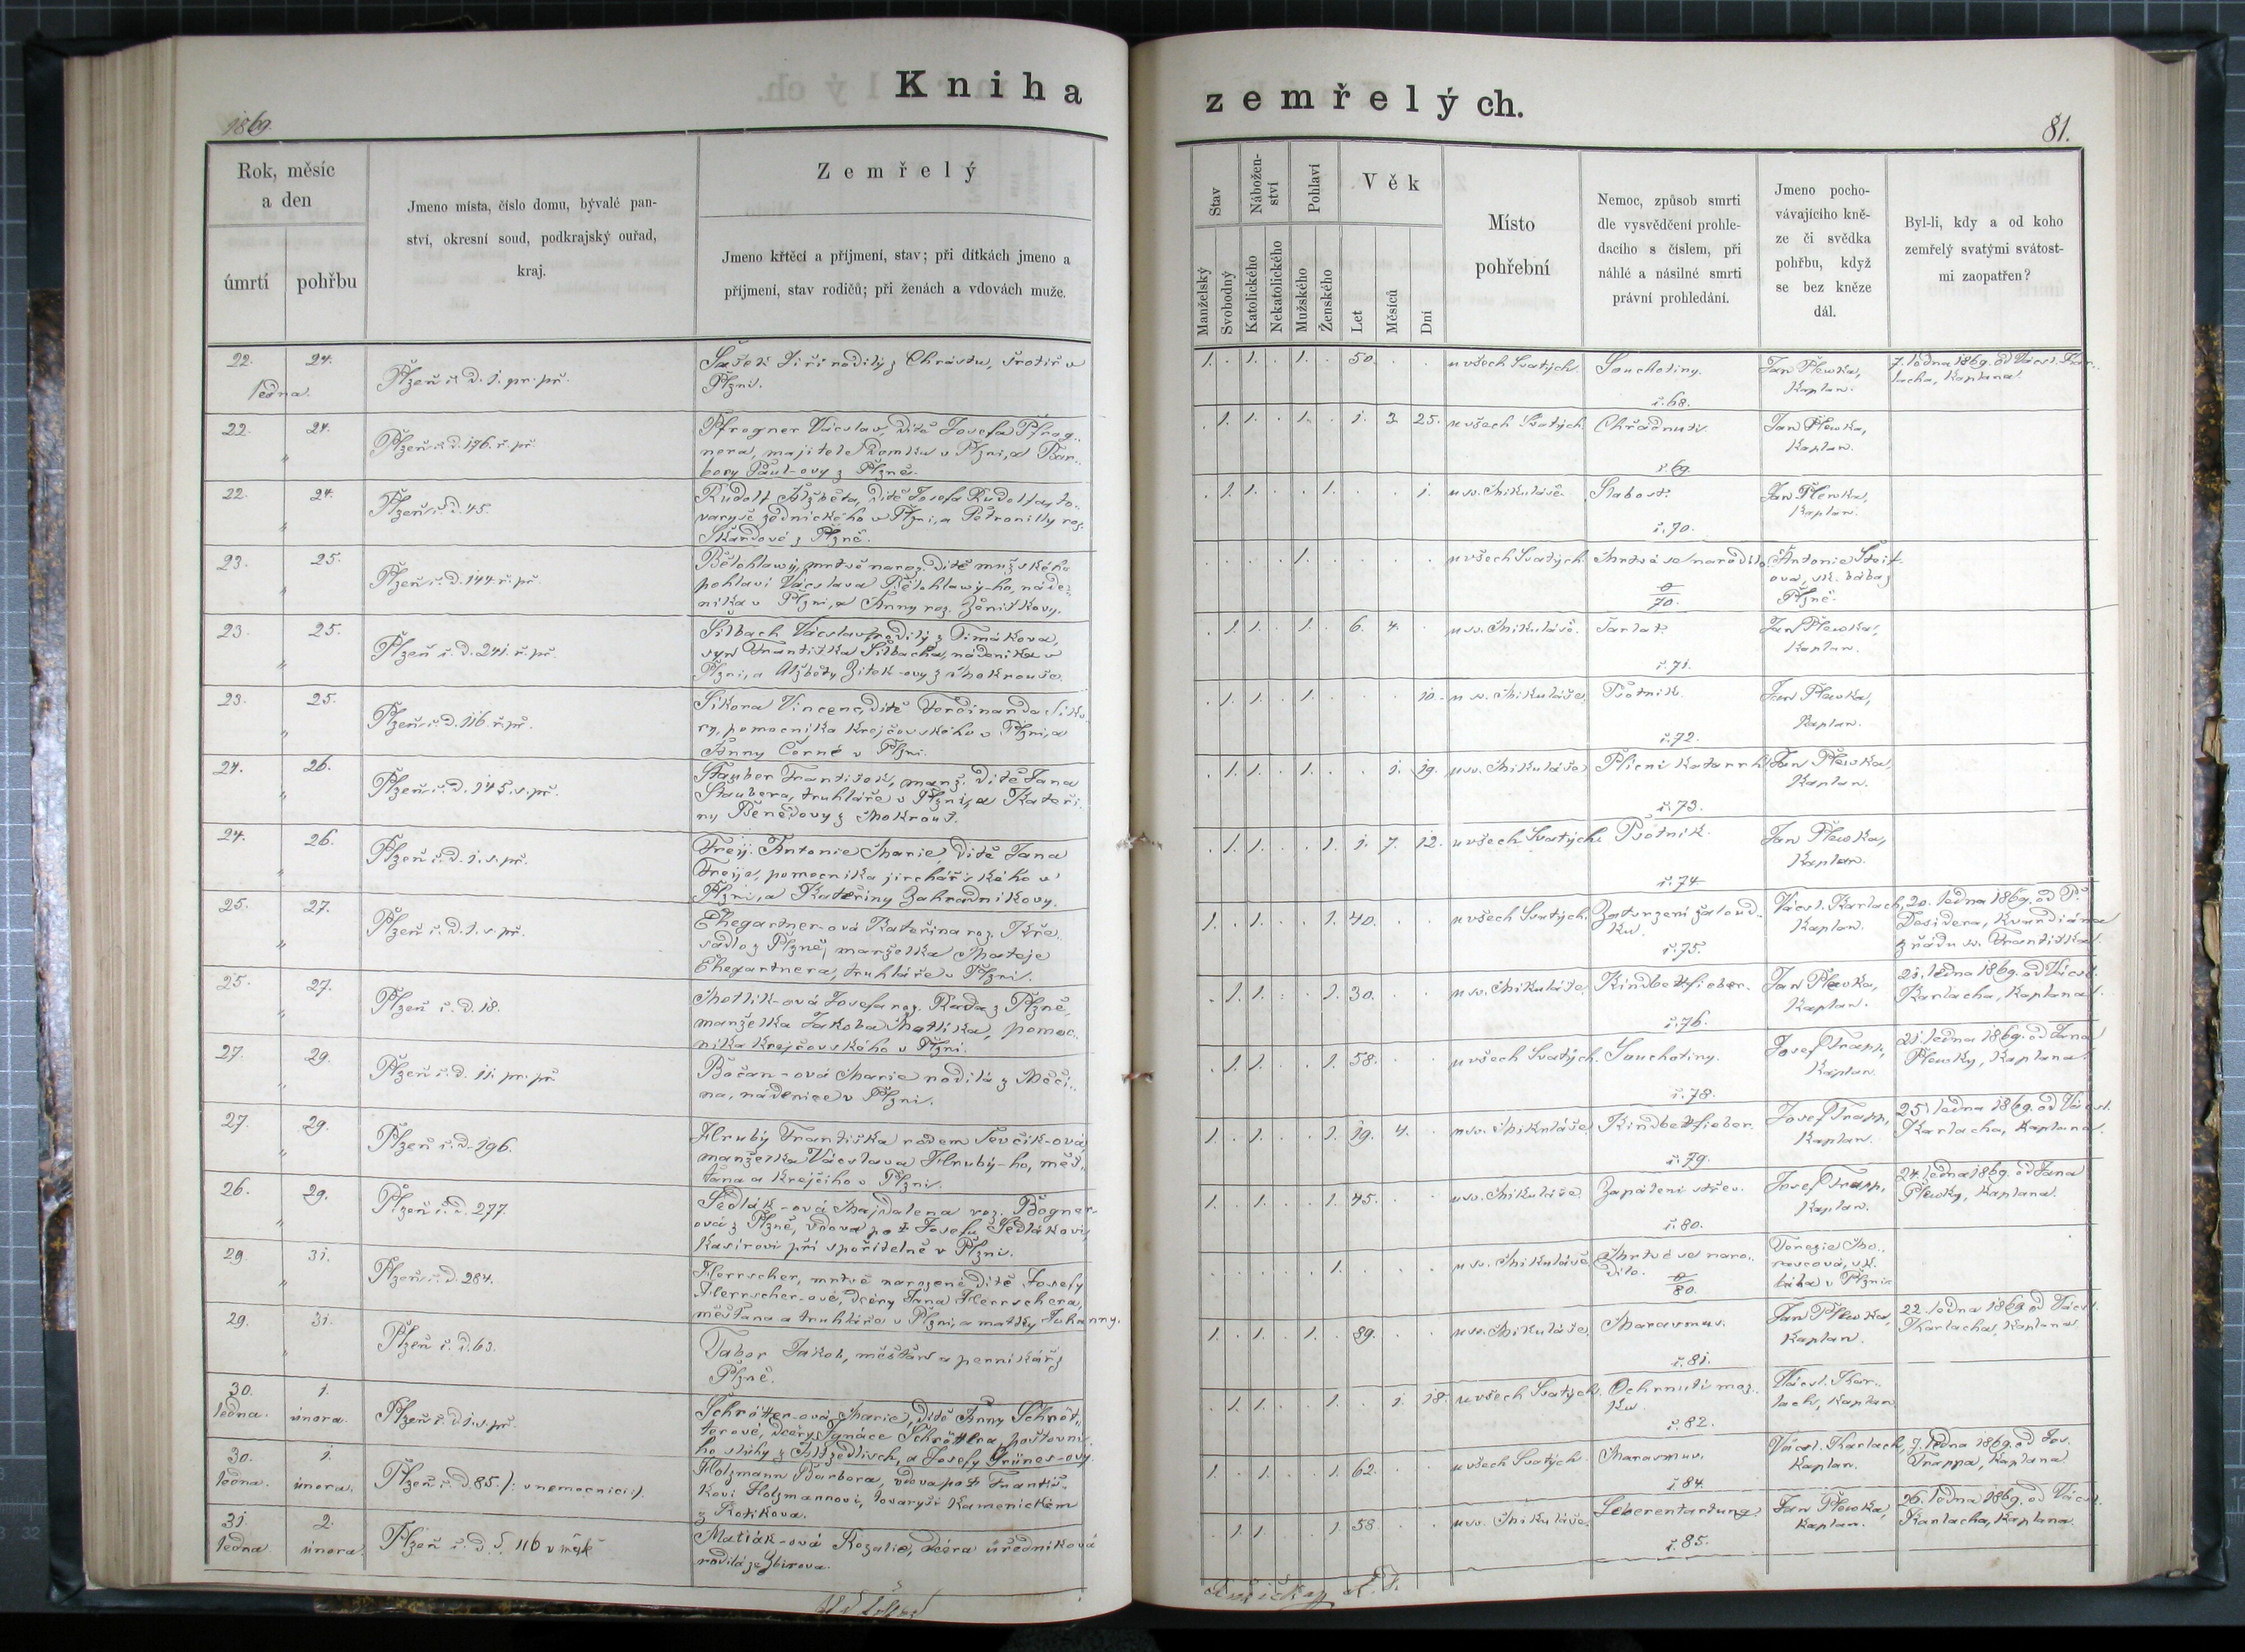 Kniha
zemřelých.
1869.
81.
Rok, měsíc
a den
úmrtí
pohřbu
Jmeno místa, číslo domu, bývalé pan-
ství, okresní soud, podkrajský ouřad,
kraj.
Zemřelý
Jmeno křtěcí a příjmení, stav; při dítkách jmeno a
příjmení, stav rodičů; při ženách a vdovách muže.
Stav
Nábožen-
ství
Pohlaví
Věk
Manželský
Svobodný
Katolického
Nekatolického
Mužského
Ženského
Let
Měsíců
Dní
Místo
pohřební
Nemoc, způsob smrti
dle vysvědčení prohle-
dacího s číslem, při
náhlé a násilné smrti
právní prohledání.
Jmeno pocho-
vávajícího kně-
ze či svědka
pohřbu, když
se bez kněze
dál.
Byl-li, kdy a od koho
zemřelý svatými svátost-
mi zaopatřen?
22. 24.
ledna.
Plzeň č. d. 1. pr. př.
Jiří rodilý z Chrástu, v
Plzni.
1. 1. 1. 50.
u všech Svatých.
Souchotiny.
č. 68.
Jan Plewka,
Kaplan.
7. ledna 1869. od Václ. Kar-
lacha, Kaplana.
22. 24.
"
Plzeň č. d. 176. ř. př.
Pfrogner Václav, dítě Josefa Pfrog-
nera, majitele domku v Plzni, a Bar-
bory Paul-ovy z Plzně.
1. 1. 1. 1. 3. 25.
u všech Svatých.
Chřadnutí.
č. 69.
Jan Plewka,
Kaplan.
22. 24.
"
Plzeň č. d. 45.
Rudolf Alžběta, dítě Josefa Rudolfa, to-
varyše zednického v Plzni, a Petronilly roz.
Škardové z Plzně.
1. 1. 1. 1.
u sv. Mikuláše.
Slabost.
č. 70.
Jan Plewka,
Kaplan.
23. 25.
"
Plzeň č. d. 144. ř. př.
Bělohlawý, mrtvě naroz. dítě mužského
pohlaví Václava Bělohlawý-ho, náde-
níka v Plzni, a Anny roz. Zeníškovy.
1.
u všech Svatých.
Mrtvé se narodilo.
0/70.
Antonie
ová, sk. bába z
Plzně.
23. 25.
"
Plzeň č. d. 241. ř. př.
Silbach Václav, rodilý z Timákova,
syn Františka Silbacha, nádeníka v
Plzni, a Alžběty Zítek-ovy z Mokrouše.
1. 1. 1. 6. 4.
u sv. Mikuláše.
Šarlat.
č. 71.
Jan Plewka,
Kaplan.
23. 25.
"
Plzeň č. d. 116. ř. př.
Sikora Vincenc, dítě Ferdinanda Siko-
ry, pomocníka krejčovského v Plzni, a
Anny Černé v Plzni.
1. 1. 1. 10.
u sv. Mikuláše.
Psotník.
č. 72.
Jan Plewka,
Kaplan.
24. 26.
"
Plzeň č. d. 145. s. př.
Stauber František, manž. dítě Jana
Staubera, truhláře v Plzni, a Kateři-
ny Benedovy z Mokrouš.
1. 1. 1. 1. 19.
u sv. Mikuláše.
Plicní katarrh.
č. 73.
Jan Plewka,
Kaplan.
24. 26.
"
Plzeň č. d. 1. s. př.
Freij. Antonie Marie, dítě Jana
Freije, pomocníka jirchářského v
Plzni, a Kateřiny Zahradníkovy.
1. 1. 1. 1. 7. 12.
u všech Svatých.
Psotník.
č. 74
Jan Plewka,
Kaplan.
25. 27.
"
Plzeň č. d. 1. s. př.
Ehegartner-ová Kateřina roz. Kře-
sadlo z Plzně, manželka Mateje
Ehegartnera, truhláře v Plzni.
1. 1. 1. 40.
u všech Svatých.
Zatvrzení žaloud-
ku.
č. 75.
Václ. Karlach,
Kaplan.
20. ledna 1869. od P.
Desidera, kvardiána
z řádu sv. Františka.
25. 27.
"
Plzeň č. d. 18.
Motlík-ová Josefa roz. Rada z Plzně,
manželka Jakoba Motlíka, pomoc-
níka krejčovského v Plzni.
1. 1. 1. 30.
u sv. Mikuláše.
Kindbettfieber.
č. 76.
Jan Plewka,
Kaplan.
21. ledna 1869. od Václ.
Karlacha, Kaplana.
27. 29.
"
Plzeň č. d. 11. pr. př.
Bočan-ová Marie rodilá z Měčí-
na, nádenice v Plzni.
1. 1. 1. 58.
u všech Svatých.
Souchotiny.
č. 78.
Josef Trapp,
Kaplan.
21. ledna 1869. od Jana
Plewky, Kaplana.
27. 29.
"
Plzeň č. d. 196.
Hrubý Františka rodem Ševčík-ová,
manželka Václava Hrubý-ho, měš-
ťana a krejčího v Plzni.
1. 1. 1. 19. 4.
u sv. Mikuláše.
Kindbettfieber.
č. 79.
Josef Trapp,
Kaplan.
25. ledna 1869. od Václ.
Karlacha, Kaplana.
26. 29.
"
Plzeň č. d. 277.
Sedlák-ová Majdalena roz. Bogner-
ová z Plzně, vdova po † Josefu Sedlákovi,
kasírovi při spořitelně v Plzni.
1. 1. 1. 45.
u sv. Mikuláše.
Zapálení střev.
č. 80.
Josef Trapp,
Kaplan.
24. ledna 1869. od Jana
Plewky, Kaplana.
29. 31.
"
Plzeň č. d. 284.
Herrscher, mrtvě narozené dítě Josefy
Herrscher-ové, dcery Jana Herrschera,
měšťana a truhláře v Plzni, a matky Johanny.
1.
u sv. Mikuláše.
Mrtvé se naro-
dilo.
0/80.
Terezie
sk.
bába v Plzni.
29. 31.
"
Plzeň č. d. 63.
Tabor Jakob, měšťan a perníkář z
Plzně.
1. 1. 1. 89.
u sv. Mikuláše.
Marasmus.
č. 81.
Jan Plewka,
Kaplan.
22. ledna 1869. od Václ.
Karlacha, Kaplana.
30. 1.
ledna. února.
Plzeň č. d. 1. s. př.
Schrötter-ová Marie, dítě Anny Schröt-
terové, dcery Ignáce Schröttera, poštovní-
ho sluhy z Altzedlisch, a Josefy Grünes-ovy.
1. 1. 1. 1. 18.
u všech Svatých.
Ochrnutí moz-
ku.
č. 82.
Václ. Kar-
lach, Kaplan
30. 1.
ledna. února.
Plzeň č. d. 85. /: v nemocnici :/.
Holzmann Barbora, vdova po † Františ-
kovi Holzmannovi, tovaryši kamenickém
z Kotíkova.
1. 1. 1. 62.
u všech Svatých.
Marasmus.
č. 84.
Václ. Karlach,
Kaplan.
7. ledna 1869. od Jos.
Trappa, Kaplana
31. 2.
ledna února.
Plzeň č. d. 116 v
Matiák-ová Rozalie, dcera úředníková
rodilá ze Zbirova.
1. 1. 1. 58.
u sv. Mikuláše.
Leberentartung.
č. 85.
Jan Plewka,
Kaplan.
26. ledna 1869. od Václ.
Karlacha, Kaplana.